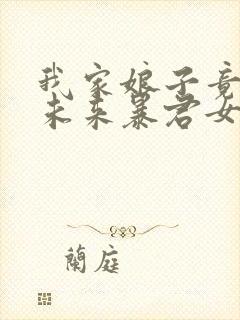 我家娘子竟
未来暴君女
蘭庭